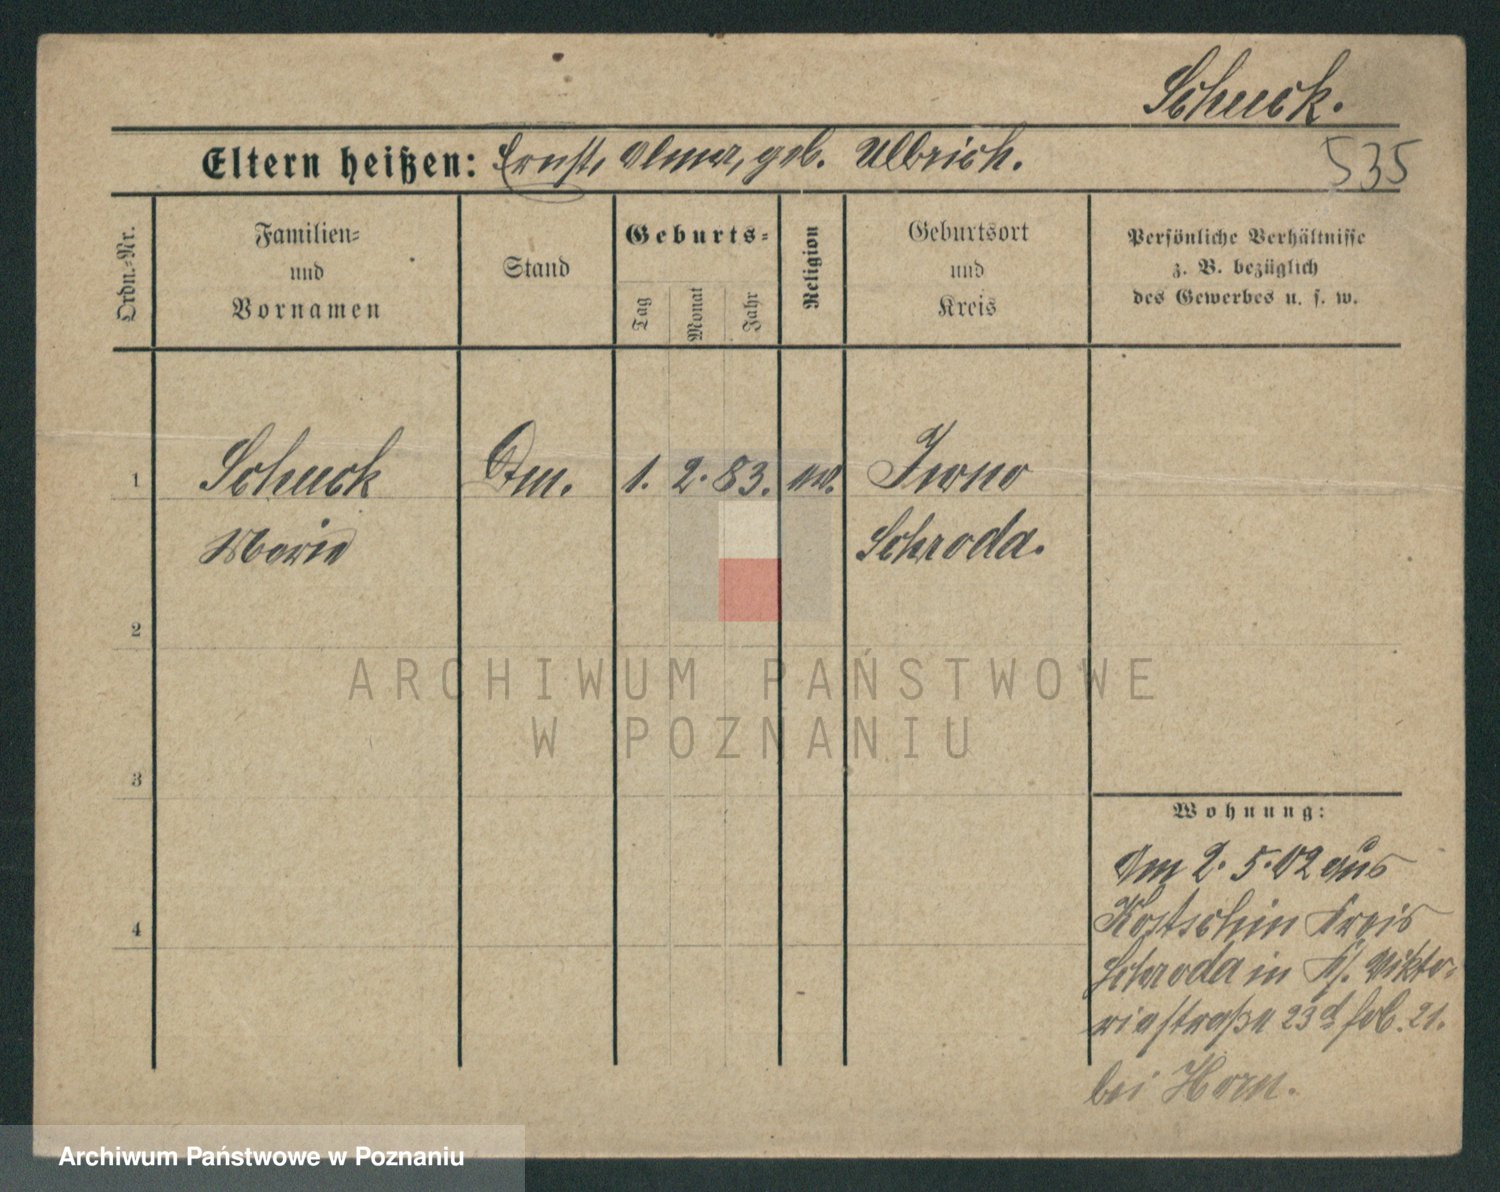 Schuck.
Eltern heißen: Ernst, Alma, geb. Ulbrich.
535
Ordn.-Nr.
Familien-
und
Vornamen
Stand
Geburts-
Tag
Monat
Jahr
Religion
Geburtsort
und
Kreis
Persönliche Verhältnisse
z. B. bezüglich
des Gewerbes u. s. w.
1 Schuck 1. 2. 83. ev. Iwno
Marie Schroda.
2
ARCHIWUM PAŃSTWOWE
W POZNANIU
3
Wohnung:
Am 2. 5. 02 aus
Kostschin Kreis
4
Schroda in Vikto-
riastraße 23 21.
bei Horn.
Archiwum Państwowe w Poznaniu